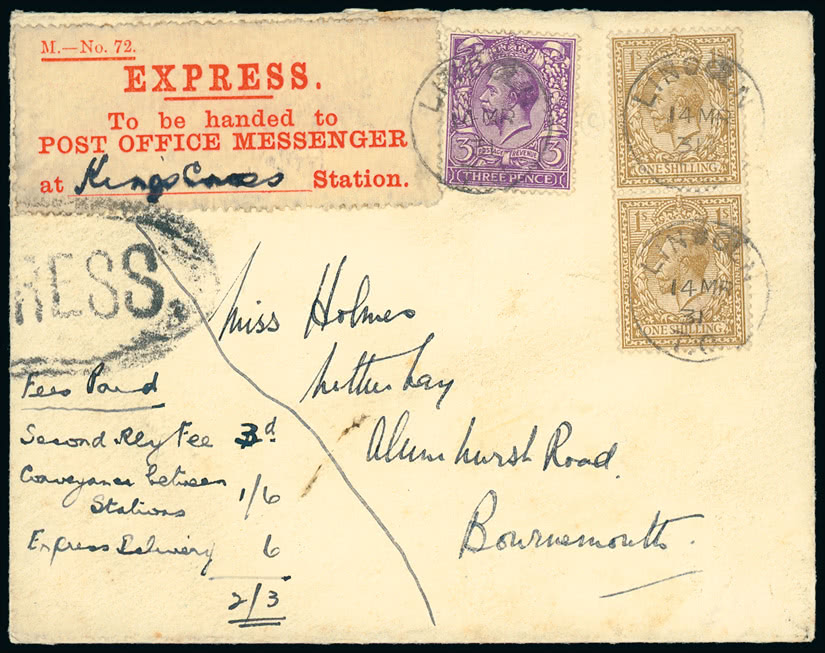 M.—No. 72.
EXPRESS.
To be handed to
POST OFFICE MESSENGER
at King's Cross Station.
3 3
POSTAGE REVENUE
THREE PENCE
LINCOLN
14 MR
1S 1S
ONE SHILLING
LINCOLN
14 MR
31
1S 1S
ONE SHILLING
LINCOLN
14 MR
31
RESS.
Miss Holmes
Alumhurst Road.
Bournemouth.
Fees Paid
Second Rly Fee 3d
Conveyance between
Stations 1/6
Express Delivery 6
2/3